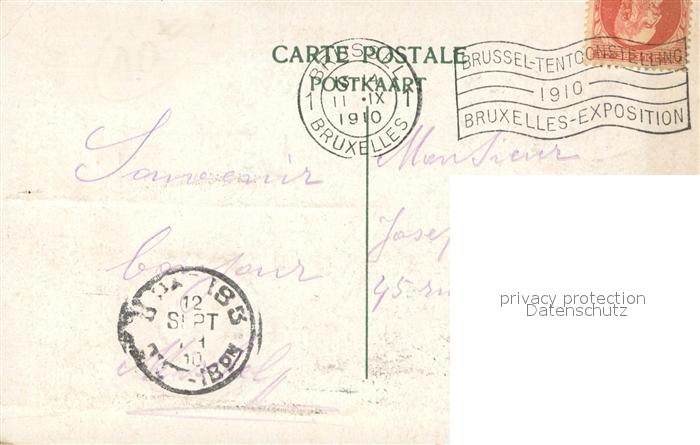 CARTE POSTALE
POSTKAART
BRUSSEL
1 11 IX 1
1910
BRUXELLES
BRUSSEL-TENTOONSTELLING
1910
BRUXELLES-EXPOSITION
Souvenir
bonjour
Monsieur
Josep
45 ru
12
SEPT
10
privacy protection
Datenschutz